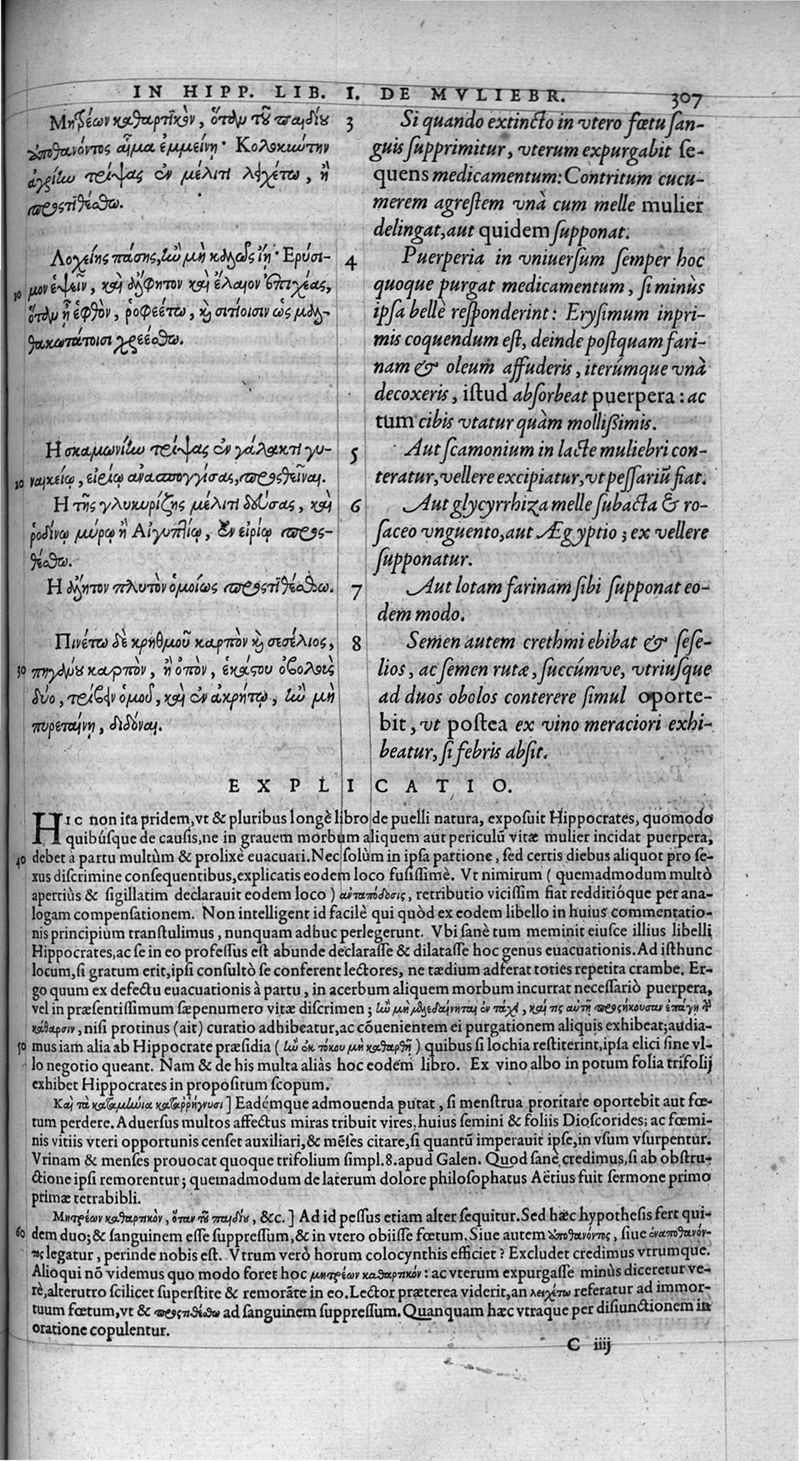 IN HIPP. LIB. I. DE MVLIEBR. 307
Μητρέων καθαρτικὸν, ὅταν τοῦ παιδίου
ἀποθανόντος αἷμα ἐμμείνῃ· Κολοκιώτην
ἀγρίην τρίψας ἐν μέλιτι λειχέτω, ἢ
προστιθέσθω.
Λοχείης πάσης, ἢν μὴ καλῶς ἴῃ· Ερύσι-
10 μον ἑψεῖν, καὶ ἄλφιτον καὶ ἔλαιον ἐπιχέας,
ὅταν ᾖ ἑφθὸν, ῥοφεέτω, καὶ σιτίοισιν ὡς μαλ-
θακωτάτοισι χρεέσθω.
Η σκαμωνίην τρίψας ἐν γάλακτι γυ-
20 ναικείῳ, εἰρίῳ ἀνασπογγίσας, προσθεῖναι.
Η τῆς γλυκυρίζης μέλιτι δεύσας, καὶ
ῥοδίνῳ μύρῳ ἢ Αἰγυπτίῳ, ἐν εἰρίῳ προσ-
θέσθω.
Η ἄλητον πλυτὸν ὁμοίως προστιθέσθω.
Πινέτω δὲ κρήθμου καρπὸν καὶ σεσέλιος,
30 πηγάνου καρπὸν, ἢ ὀπὸν, ἑκάστου ὀβολοὺς
δύο, τρίβειν ὁμοῦ, καὶ ἐν ἀκρήτῳ, ἢν μὴ
πυρεταίνῃ, διδόναι.
3 Si quando extincto in vtero fœtu ſan-
guis ſupprimitur, vterum expurgabit ſe-
quens medicamentum: Contritum cucu-
merem agreſtem vnà cum melle mulier
delingat, aut quidem ſupponat.
4 Puerperia in vniuerſum ſemper hoc
quoque purgat medicamentum, ſi minùs
ipſa bellè reſponderint: Eryſimum inpri-
mis coquendum eſt, deinde poſtquam fari-
nam & oleum affuderis, iterúmque vnà
decoxeris, iſtud abſorbeat puerpera: ac
tum cibis vtatur quàm mollißimis.
5 Aut ſcamonium in lacte muliebri con-
teratur, vellere excipiatur, vt peſſariũ fiat.
6 Aut glycyrrhiza melle ſubacta & ro-
ſaceo vnguento, aut Ægyptio; ex vellere
ſupponatur.
7 Aut lotam farinam ſibi ſupponat eo-
dem modo.
8 Semen autem crethmi ebibat & ſeſe-
lios, ac ſemen rutæ, ſuccúmve, vtriuſque
ad duos obolos conterere ſimul oporte-
bit, vt poſtea ex vino meraciori exhi-
beatur, ſi febris abſit.
EXPLICATIO.
HIC non ita pridem, vt & pluribus longè libro de puelli natura, expoſuit Hippocrates, quomodo
quibúſque de cauſis, ne in grauem morbum aliquem aut periculũ vitæ mulier incidat puerpera,
40 debet à partu multùm & prolixè euacuari. Nec ſolùm in ipſa partione, ſed certis diebus aliquot pro ſe-
xus diſcrimine conſequentibus, explicatis eodem loco fuſiſſimè. Vt nimirum (quemadmodum multò
apertiùs & ſigillatim declarauit eodem loco) ἀνταπόδοσις, retributio viciſſim fiat redditióque per ana-
logam compenſationem. Non intelligent id facilè qui quòd ex eodem libello in huius commentatio-
nis principium tranſtulimus, nunquam adhuc perlegerunt. Vbi ſanè tum meminit eiuſce illius libelli
Hippocrates, ac ſe in eo profeſſus eſt abunde declaraſſe & dilataſſe hoc genus euacuationis. Ad iſthunc
locum, ſi gratum erit, ipſi conſultò ſe conferent lectores, ne tædium adferat toties repetita crambe. Er-
go quum ex defectu euacuationis à partu, in acerbum aliquem morbum incurrat neceſſariò puerpera,
vel in præſentiſſimum ſæpenumero vitæ diſcrimen;
καθαρσιν, niſi protinus (ait) curatio adhibeatur, ac cõuenientem ei purgationem aliquis exhibeat; audia-
50 mus iam alia ab Hippocrate præſidia (ἢν ἐκ τόκου μὴ καθαρθῇ) quibus ſi lochia reſtiterint, ipſa elici ſine vl-
lo negotio queant. Nam & de his multa aliàs hoc eodem libro. Ex vino albo in potum folia trifolij
exhibet Hippocrates in propoſitum ſcopum.
Καὶ τὰ καταμήνια καταρρήγνυσι] Eadémque admouenda putat, ſi menſtrua proritare oportebit aut fœ-
tum perdere. Aduerſus multos affectus miras tribuit vires, huius ſemini & foliis Dioſcorides; ac fœmi-
nis vitiis vteri opportunis cenſet auxiliari, & mẽſes citare, ſi quantũ imperauit ipſe, in vſum vſurpentur.
Vrinam & menſes prouocat quoque trifolium ſimpl. 8. apud Galen. Quod ſanè credimus, ſi ab obſtru-
ctione ipſi remorentur; quemadmodum de laterum dolore philoſophatus Aëtius fuit ſermone primo
primæ tetrabibli.
Μητρέων καθαρτικὸν, ὅταν τοῦ παιδίου, &c.] Ad id peſſus etiam alter ſequitur. Sed hæc hypotheſis fert qui-
60 dem duo; & ſanguinem eſſe ſuppreſſum, & in vtero obiiſſe fœtum. Siue autem ἀποθανόντος, ſiue ἐναποθανόν-
τος legatur, perinde nobis eſt. Vtrum verò horum colocynthis efficiet? Excludet credimus vtrumque.
Alioqui nõ videmus quo modo foret hoc μητρέων καθαρτικόν: ac vterum expurgaſſe minùs diceretur ve-
rè, alterutro ſcilicet ſuperſtite & remorãte in eo. Lector præterea viderit, an λειχέτω referatur ad immor-
tuum fœtum, vt & προστιθέσθω ad ſanguinem ſuppreſſum. Quanquam hæc vtraque per diſiunctionem in
oratione copulentur.
C iiij